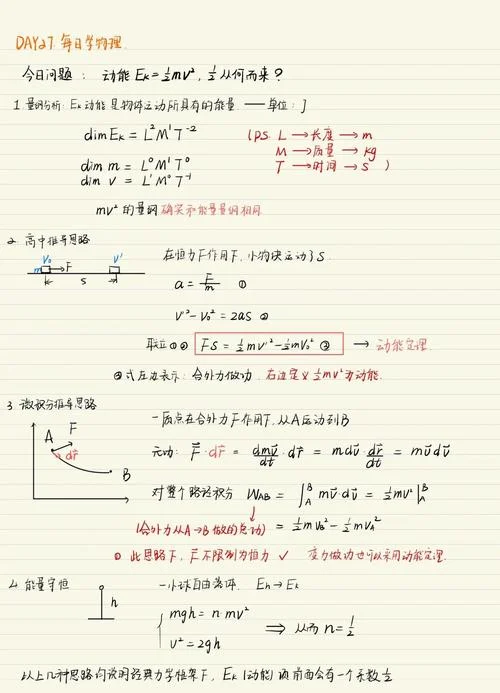 DAY27 每日学物理
今日问题： 动能 Eₖ=½mv², ½从何而来？
1 量纲分析: Eₖ动能是物体运动所具有的能量 —— 单位：J
dim Eₖ = L²M¹T⁻² (PS. L → 长度 → m
M → 质量 → kg
dim m = L⁰M¹T⁰ T → 时间 → s )
dim v = L¹M⁰T⁻¹
mv² 的量纲 确实和能量量纲相同
2 高中推导思路
v₀ v' 在恒力F作用下, 小物块运动了S
m F
S
a = F/m ①
v'²-v₀² = 2as ②
联立①② FS = ½mv'²-½mv₀² ③ → 动能定理
③式左边表示：合外力做功, 右边定义½mv²为动能.
3 微积分推导思路
一质点在合外力F作用下, 从A运动到B
A F dr⃗ B
元功: F⃗·dr⃗ = dmv⃗/dt · dr⃗ = mdv⃗ dr⃗/dt = mv⃗dv⃗
对整个路径积分 W_AB = ∫_A^B mv⃗dv⃗ = ½mv²|_A^B
(合外力从A→B做的总功) = ½mv_B² - ½mv_A²
① 此思路下, F⃗不限制为恒力 ✓ 变力做功也可以采用动能定理.
4. 能量守恒
h
一小球自由落体. Eₕ → Eₖ
mgh = n·mv²
v² = 2gh ⇒ 从而 n = ½
以上几种思路均说明经典力学框架下, Eₖ(动能)项前面会有一个系数½